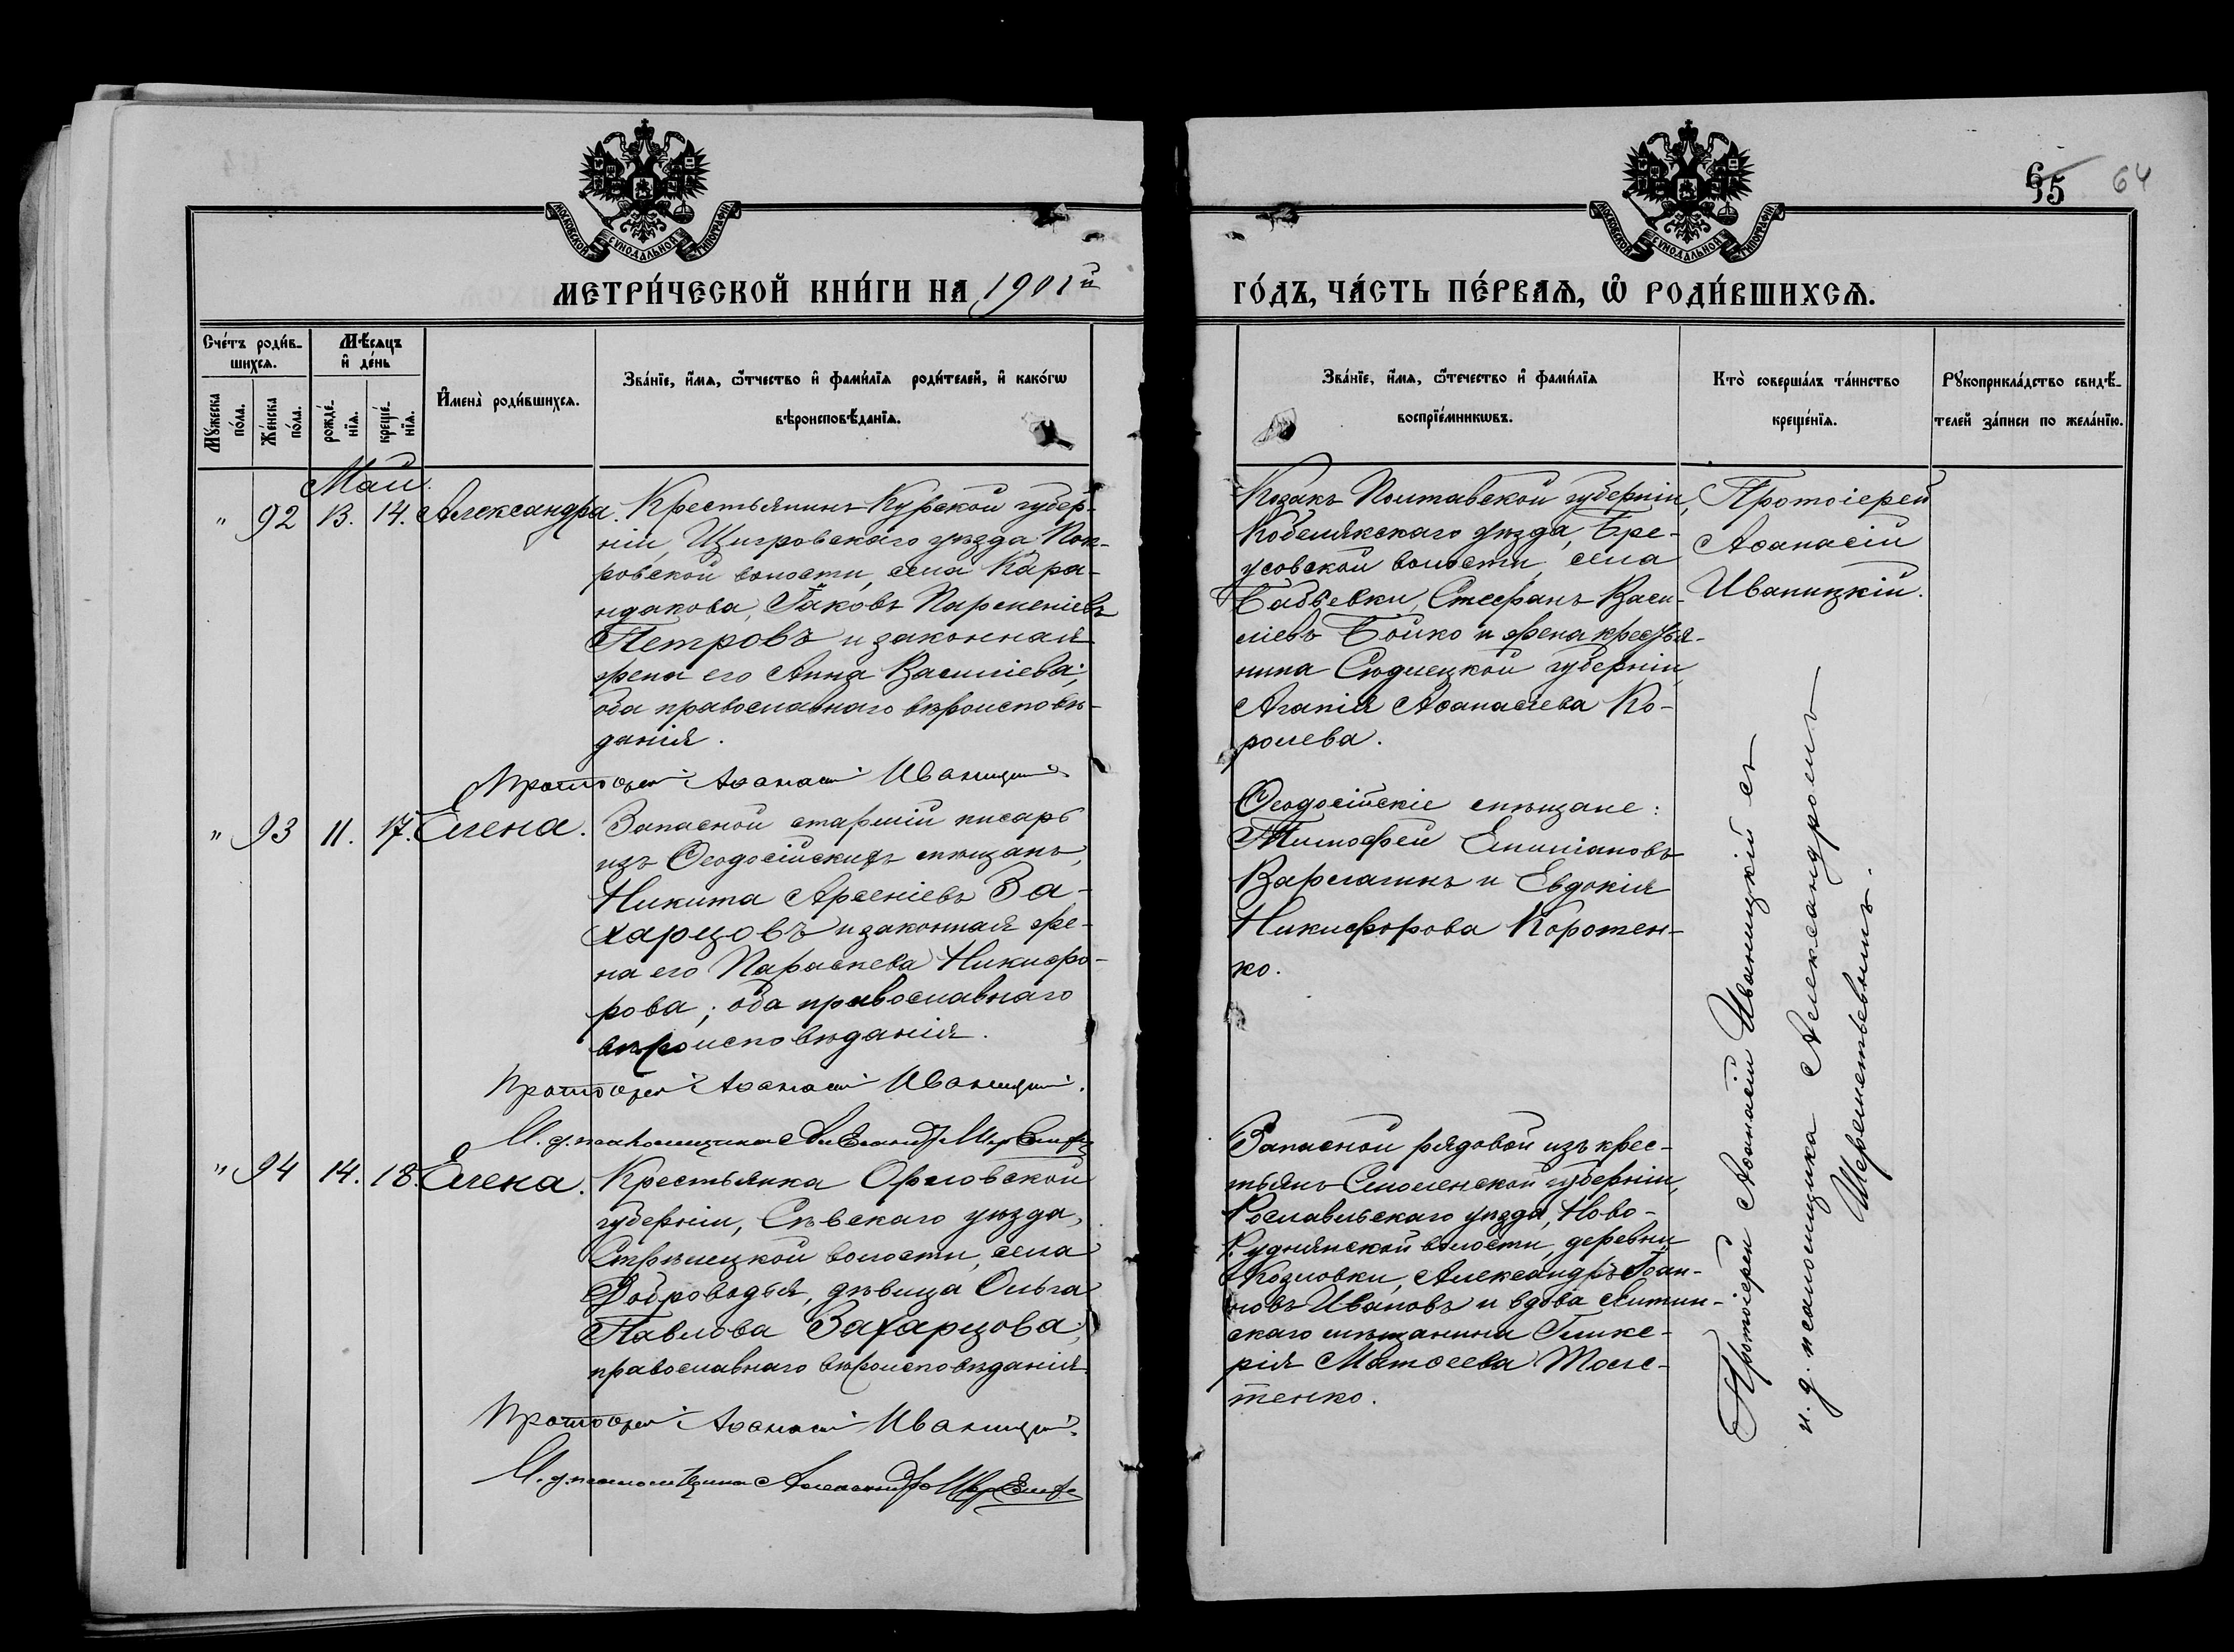 65 64
МОСКОВСКОЙ СѴНОДАЛЬНОЙ ТИПОГРАФІИ
МОСКОВСКОЙ СѴНОДАЛЬНОЙ ТИПОГРАФІИ
МЕТРИ́ЧЕСКОЙ КНИ́ГИ НА 1901й
ГО́ДЪ, ЧА́СТЬ ПЕ́РВАѦ, Ѡ҆ РОДИ́ВШИХСѦ.
Сче́тъ роди́в-
шихсѧ.
Мꙋ́жеска
по́ла.
Же́нска
по́ла.
Мѣ́сѧцъ
и҆ де́нь
рожде́-
нїѧ.
креще́-
нїѧ.
И҆мена̀ роди́вшихсѧ.
Зва́нїе, и҆́мѧ, ѻ҆́тчество и҆ фами́лїѧ роди́телей, и҆ како́гѡ
вѣроисповѣ́данїѧ.
Зва́нїе, и҆́мѧ, ѻ҆́течество и҆ фами́лїѧ
воспрїе́мникѡвъ.
Кто̀ соверша́лъ та́инство
креще́нїѧ.
Рꙋкоприкла́дство свидѣ́-
телей за́писи по жела́нїю.
Май.
" 92 13. 14. Александра.
Крестьянинъ Курской губер-
ніи, Щигровскаго уѣзда Пок-
ровской волости, села Кара-
ндакова, Іаковъ Парѳеніевъ
Петровъ и законная
жена его Анна Василіева;
оба православнаго вѣроисповѣ-
данія.
Протоіерей Аѳанасій Иваницкій
Козакъ Полтавской губерніи,
Кобелякскаго уѣзда, Бре-
усовской волости, села
Бабъевки, Стефанъ Васи-
ліевъ Бойко и жена крестья-
нина Сѣдлецкой губерніи,
Агапія Аѳанасіева Ко-
ролева.
Протоіерей
Аѳанасій
Иваницкій.
" 93 11. 17. Елена.
Запасной старшій писарь
изъ Ѳеодосійскихъ мѣщанъ,
Никита Арсеніевъ За-
харцовъ и законная же-
на его Параскева Никифо-
рова; оба православнаго
вѣроисповѣданія.
Протоіерей Аѳанасій Иваницкій.
И. д. псаломщика Александръ
Ѳеодосійскіе мѣщане:
Тимофей Емиліановъ
Варлагинъ и Евдокія
Никифорова Коротен-
ко.
" 94 14. 18. Елена.
Крестьянка Орловской
губерніи, Сѣвскаго уѣзда,
Стрѣлецкой волости, села
Доброводья, дѣвица Ольга
Павлова Захарцова,
православнаго вѣроисповѣданія.
Протоіерей Аѳанасій Иваницкій.
И. д. псаломщика Александръ
Запасной рядовой изъ крес-
тьянъ Смоленской губерніи,
Рославльскаго уѣзда, Ново-
Руднянской волости, деревни
Козловки, Александръ Іоан-
новъ Ивановъ и вдова
скаго мѣщанина Глике-
рія Матѳеева
тенко.
Протоіерей Аѳанасій Иваницкій съ
и. д. псаломщика Александромъ
Шереметьевымъ.